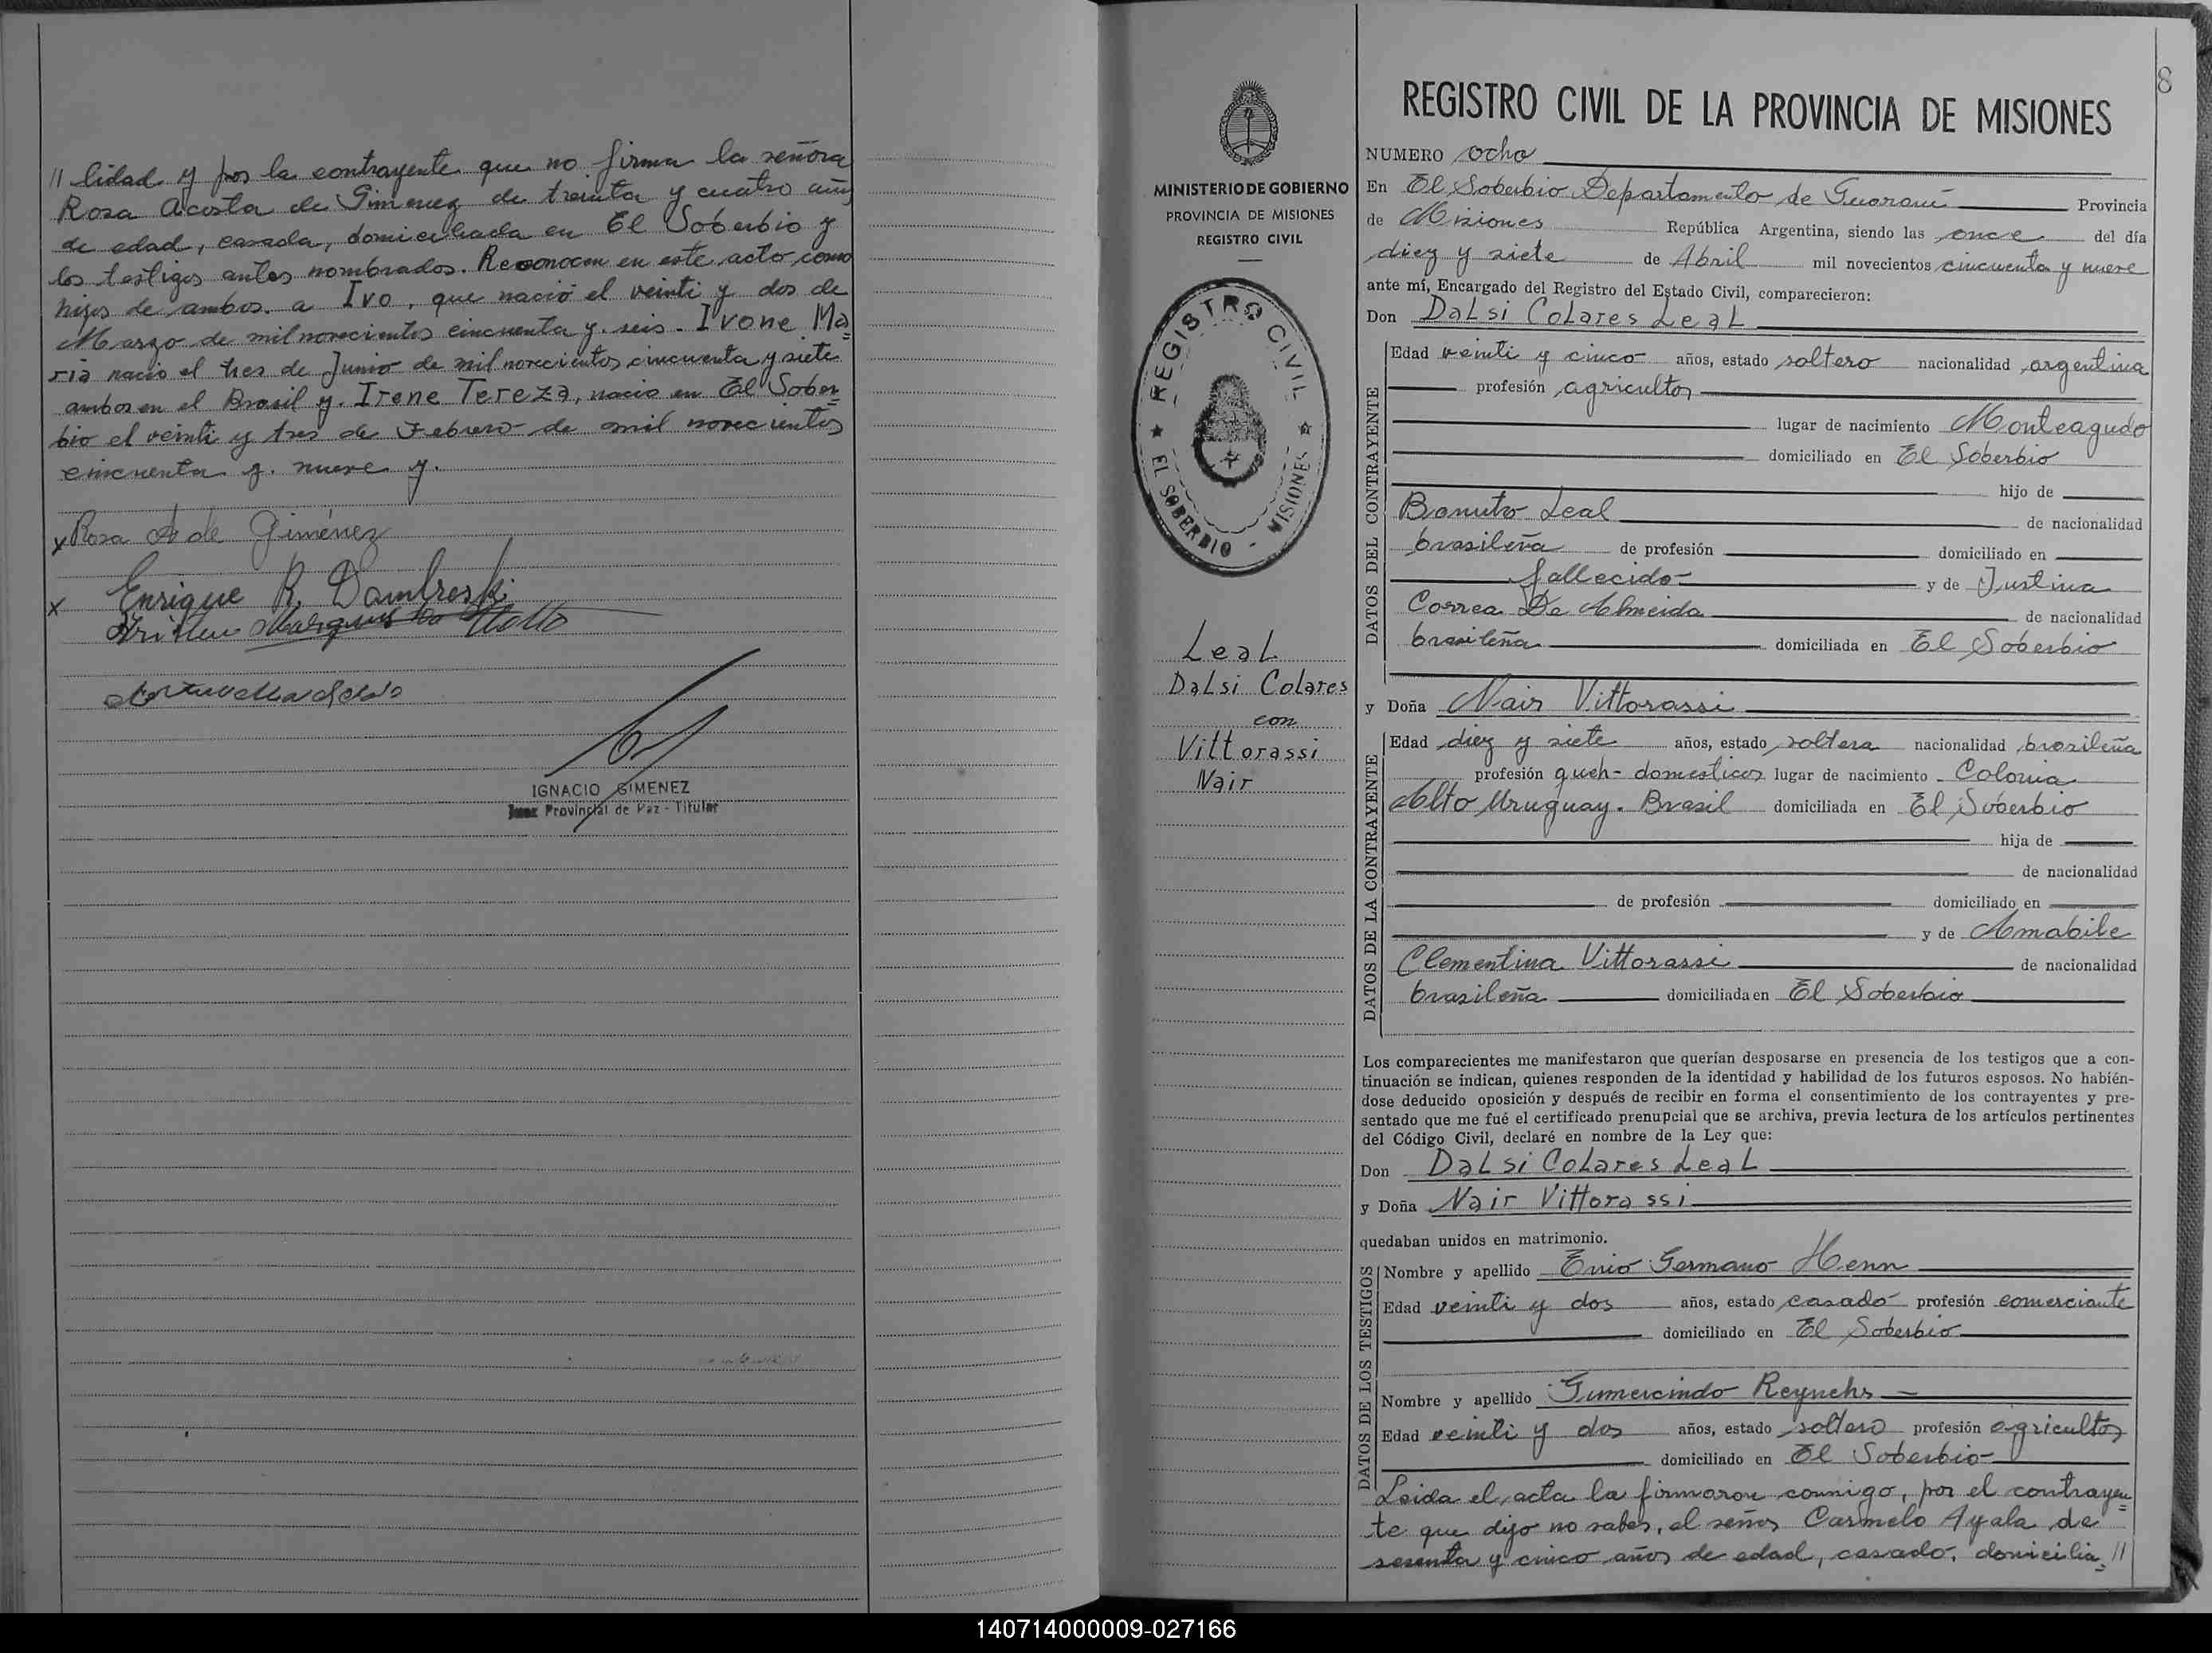 // lidad y por la contrayente que no firma la señora
Rosa Acosta de Gimenez de treinta y cuatro años
de edad, casada, domiciliada en El Soberbio y
los testigos antes nombrados. Reconocen en este acto como
hijos de ambos. a Ivo, que nació el veinti y dos de
Marzo de mil novecientos cincuenta y seis - Ivone Ma=
ria nacio el tres de Junio de mil novecientos cincuenta y siete
ambos en el Brasil y. Irene Tereza, nacio en El Sober=
bio el veinti y tres de Febrero de mil novecientos
cincuenta y nueve y.
x Rosa A de Giménez
x Enrique R. Dambreski
IGNACIO GIMENEZ
Juez Provincial de Paz - Titular
8
MINISTERIO DE GOBIERNO
PROVINCIA DE MISIONES
REGISTRO CIVIL
REGISTRO CIVIL
EL SOBERBIO - MISIONES
Leal
Dalsi Colares
con
Vittorassi
Nair
REGISTRO CIVIL DE LA PROVINCIA DE MISIONES
NUMERO ocho
En El Soberbio Departamento de Guarani Provincia
de Misiones República Argentina, siendo las once del día
diez y siete de Abril mil novecientos cincuenta y nueve
ante mí, Encargado del Registro del Estado Civil, comparecieron:
Don Dalsi Colares Leal
DATOS DEL CONTRAYENTE
Edad veinti y cinco años, estado soltero nacionalidad argentina
profesión agricultor
lugar de nacimiento Monteagudo
domiciliado en El Soberbio
hijo de
Bonuto Leal de nacionalidad
brasileña de profesión domiciliado en
fallecido y de Justina
Correa De Almeida de nacionalidad
brasileña domiciliada en El Soberbio
y Doña Nair Vittorassi
DATOS DE LA CONTRAYENTE
Edad diez y siete años, estado soltera nacionalidad brasileña
profesión queh- domesticos lugar de nacimiento Colonia
Alto Uruguay. Brasil domiciliada en El Soberbio
hija de
de nacionalidad
de profesión domiciliado en
y de Amabile
Clementina Vittorassi de nacionalidad
brasileña domiciliada en El Soberbio
Los comparecientes me manifestaron que querían desposarse en presencia de los testigos que a con-
tinuación se indican, quienes responden de la identidad y habilidad de los futuros esposos. No habién-
dose deducido oposición y después de recibir en forma el consentimiento de los contrayentes y pre-
sentado que me fué el certificado prenupcial que se archiva, previa lectura de los artículos pertinentes
del Código Civil, declaré en nombre de la Ley que:
Don Dalsi Colares Leal
y Doña Nair Vittorassi
quedaban unidos en matrimonio.
DATOS DE LOS TESTIGOS
Nombre y apellido Enio Germano Henn
Edad veinti y dos años, estado casado profesión comerciante
domiciliado en El Soberbio
Nombre y apellido Gumercindo Reynehs
Edad veinti y dos años, estado soltero profesión agricultor
domiciliado en El Soberbio
Leida el acta la firmaron conmigo, por el contrayen=
te que dijo no saber, el señor Carmelo Ayala de
sesenta y cinco años de edad, casado, domicilia= //
140714000009-027166